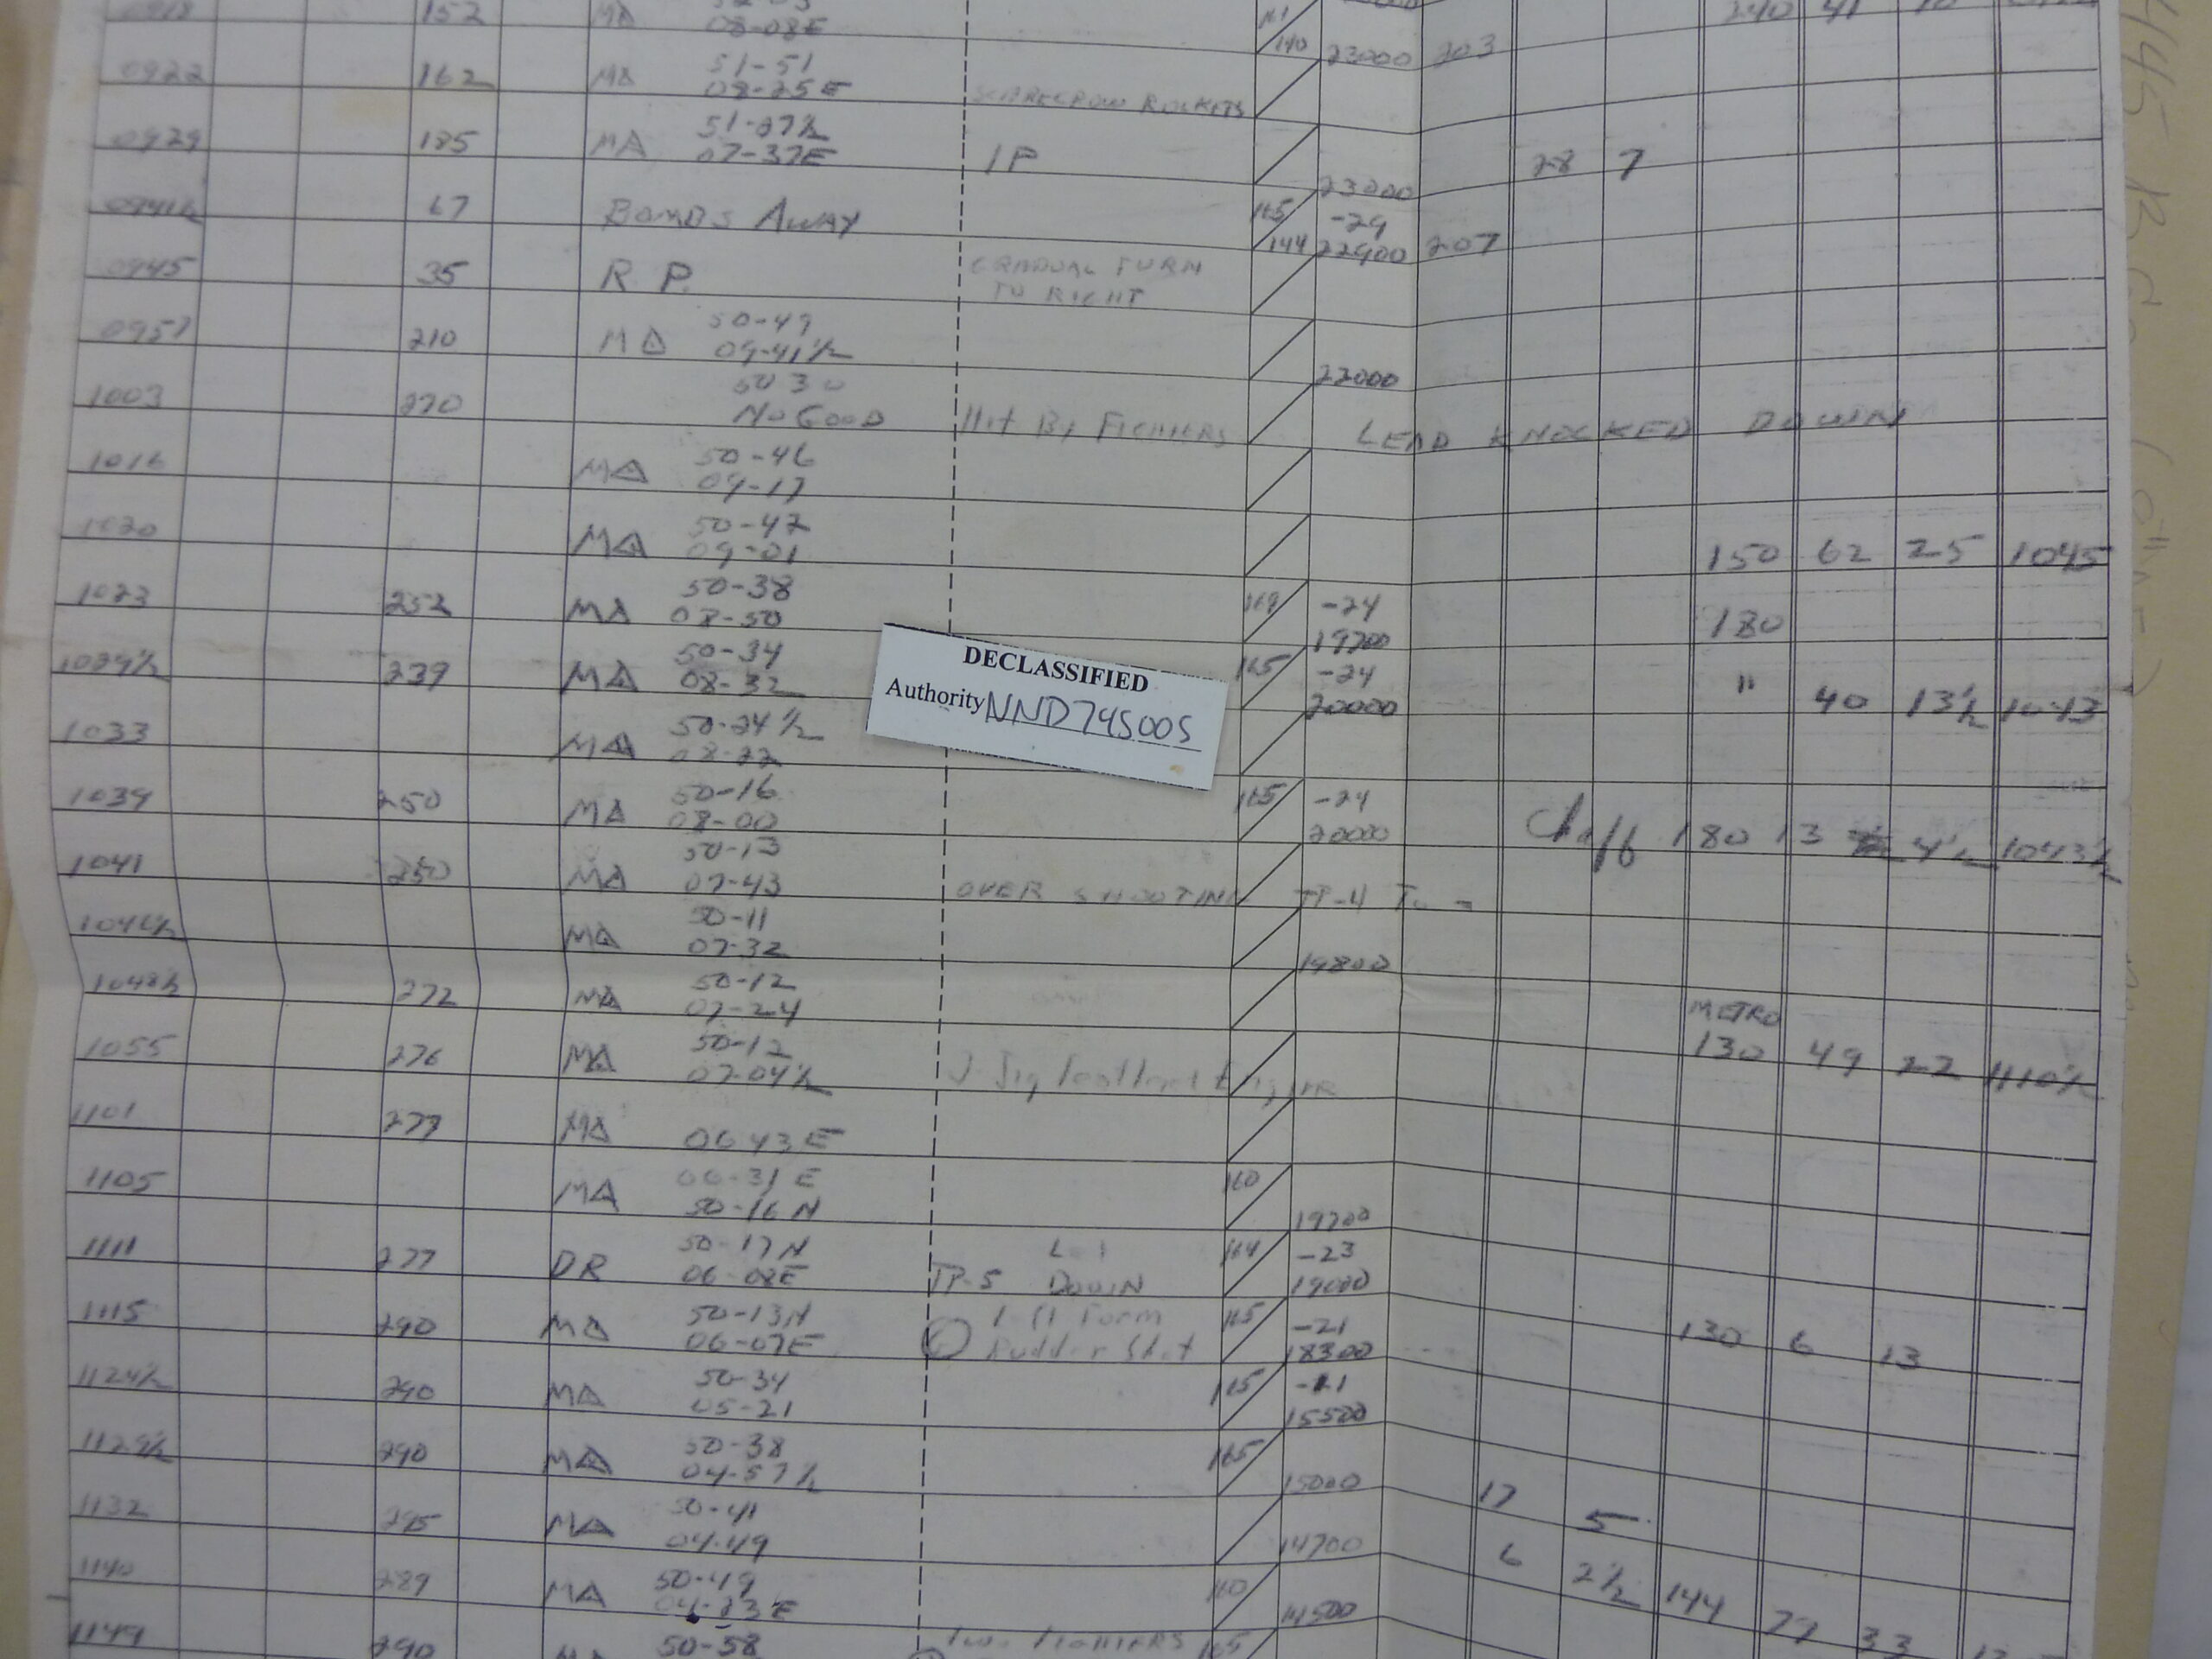 152 MA 08-08E 140 23000 203
0922 162 MA 51-51
08-25E SCARECROW ROCKETS
0929 185 MA 51-27½
07-37E IP 23000 28 7
0941½ 67 BOMBS AWAY 165 -29
144 22900 207
0945 35 R.P. GRADUAL TURN
TO RIGHT
0957 210 MA 50-49
09-41½ 22000
1003 270 50 30
NO GOOD Hit By FIGHTERS LEAD KNOCKED DOWN
1016 MA 50-46
09-17
1020 MA 50-47
09-01 150 62 25 1045
1023 252 MA 50-38
08-50 169 -24
19700 180
1029½ 239 MA 50-34
08-32 165 -24
20000 " 40 13½ 1043
DECLASSIFIED
Authority NND745005
1033 MA 50-24½
08-22
1039 250 MA 50-16
08-00 165 -24
20000 Chaff 180 13 4½ 1043½
1041 250 MA 50-13
07-43 OVER SHOOTING TP-4
MA 50-11
07-32 19800
1048½ 272 MA 50-12
07-24
METRO
1055 276 MA 50-12
07-04½ 130 49 22 1110½
1101 277 MA 06 43E
1105 MA 06-31 E
50-16N 160 19700
1111 277 DR 50-17N
06-08E TP-5 DOWN 164 -23
19000
1115 290 MA 50-13N
06-07E Form
Rudder Shot 165 -21
18300 130 6 13
1124½ 290 MA 50-34
05-21 165
15500
1129½ 290 MA 50-38
04-57½ 165
15000 17 5
1132 295 MA 50-41
04-49 14700 6 2½
1140 289 MA 50-49
04-23E 160
14500 144 77 33
1149 290 50-58 TWO FIGHTERS 165